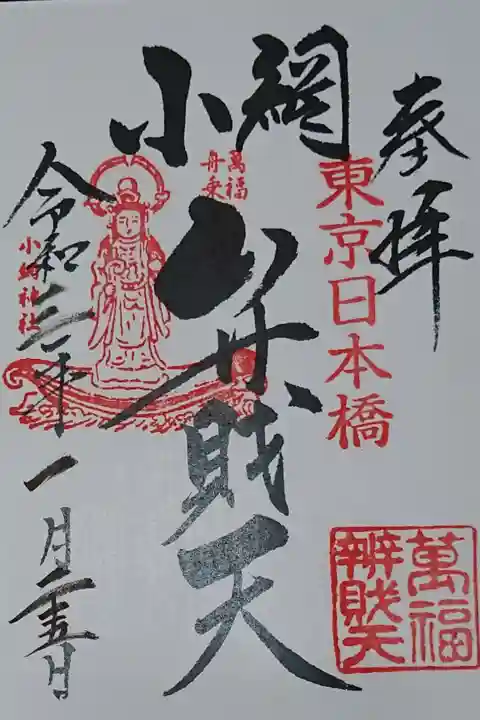 奉拝
東京日本橋
小網
弁財天
萬福
舟乗
小網神社
令和三年一月二十五日
萬福
辨財天